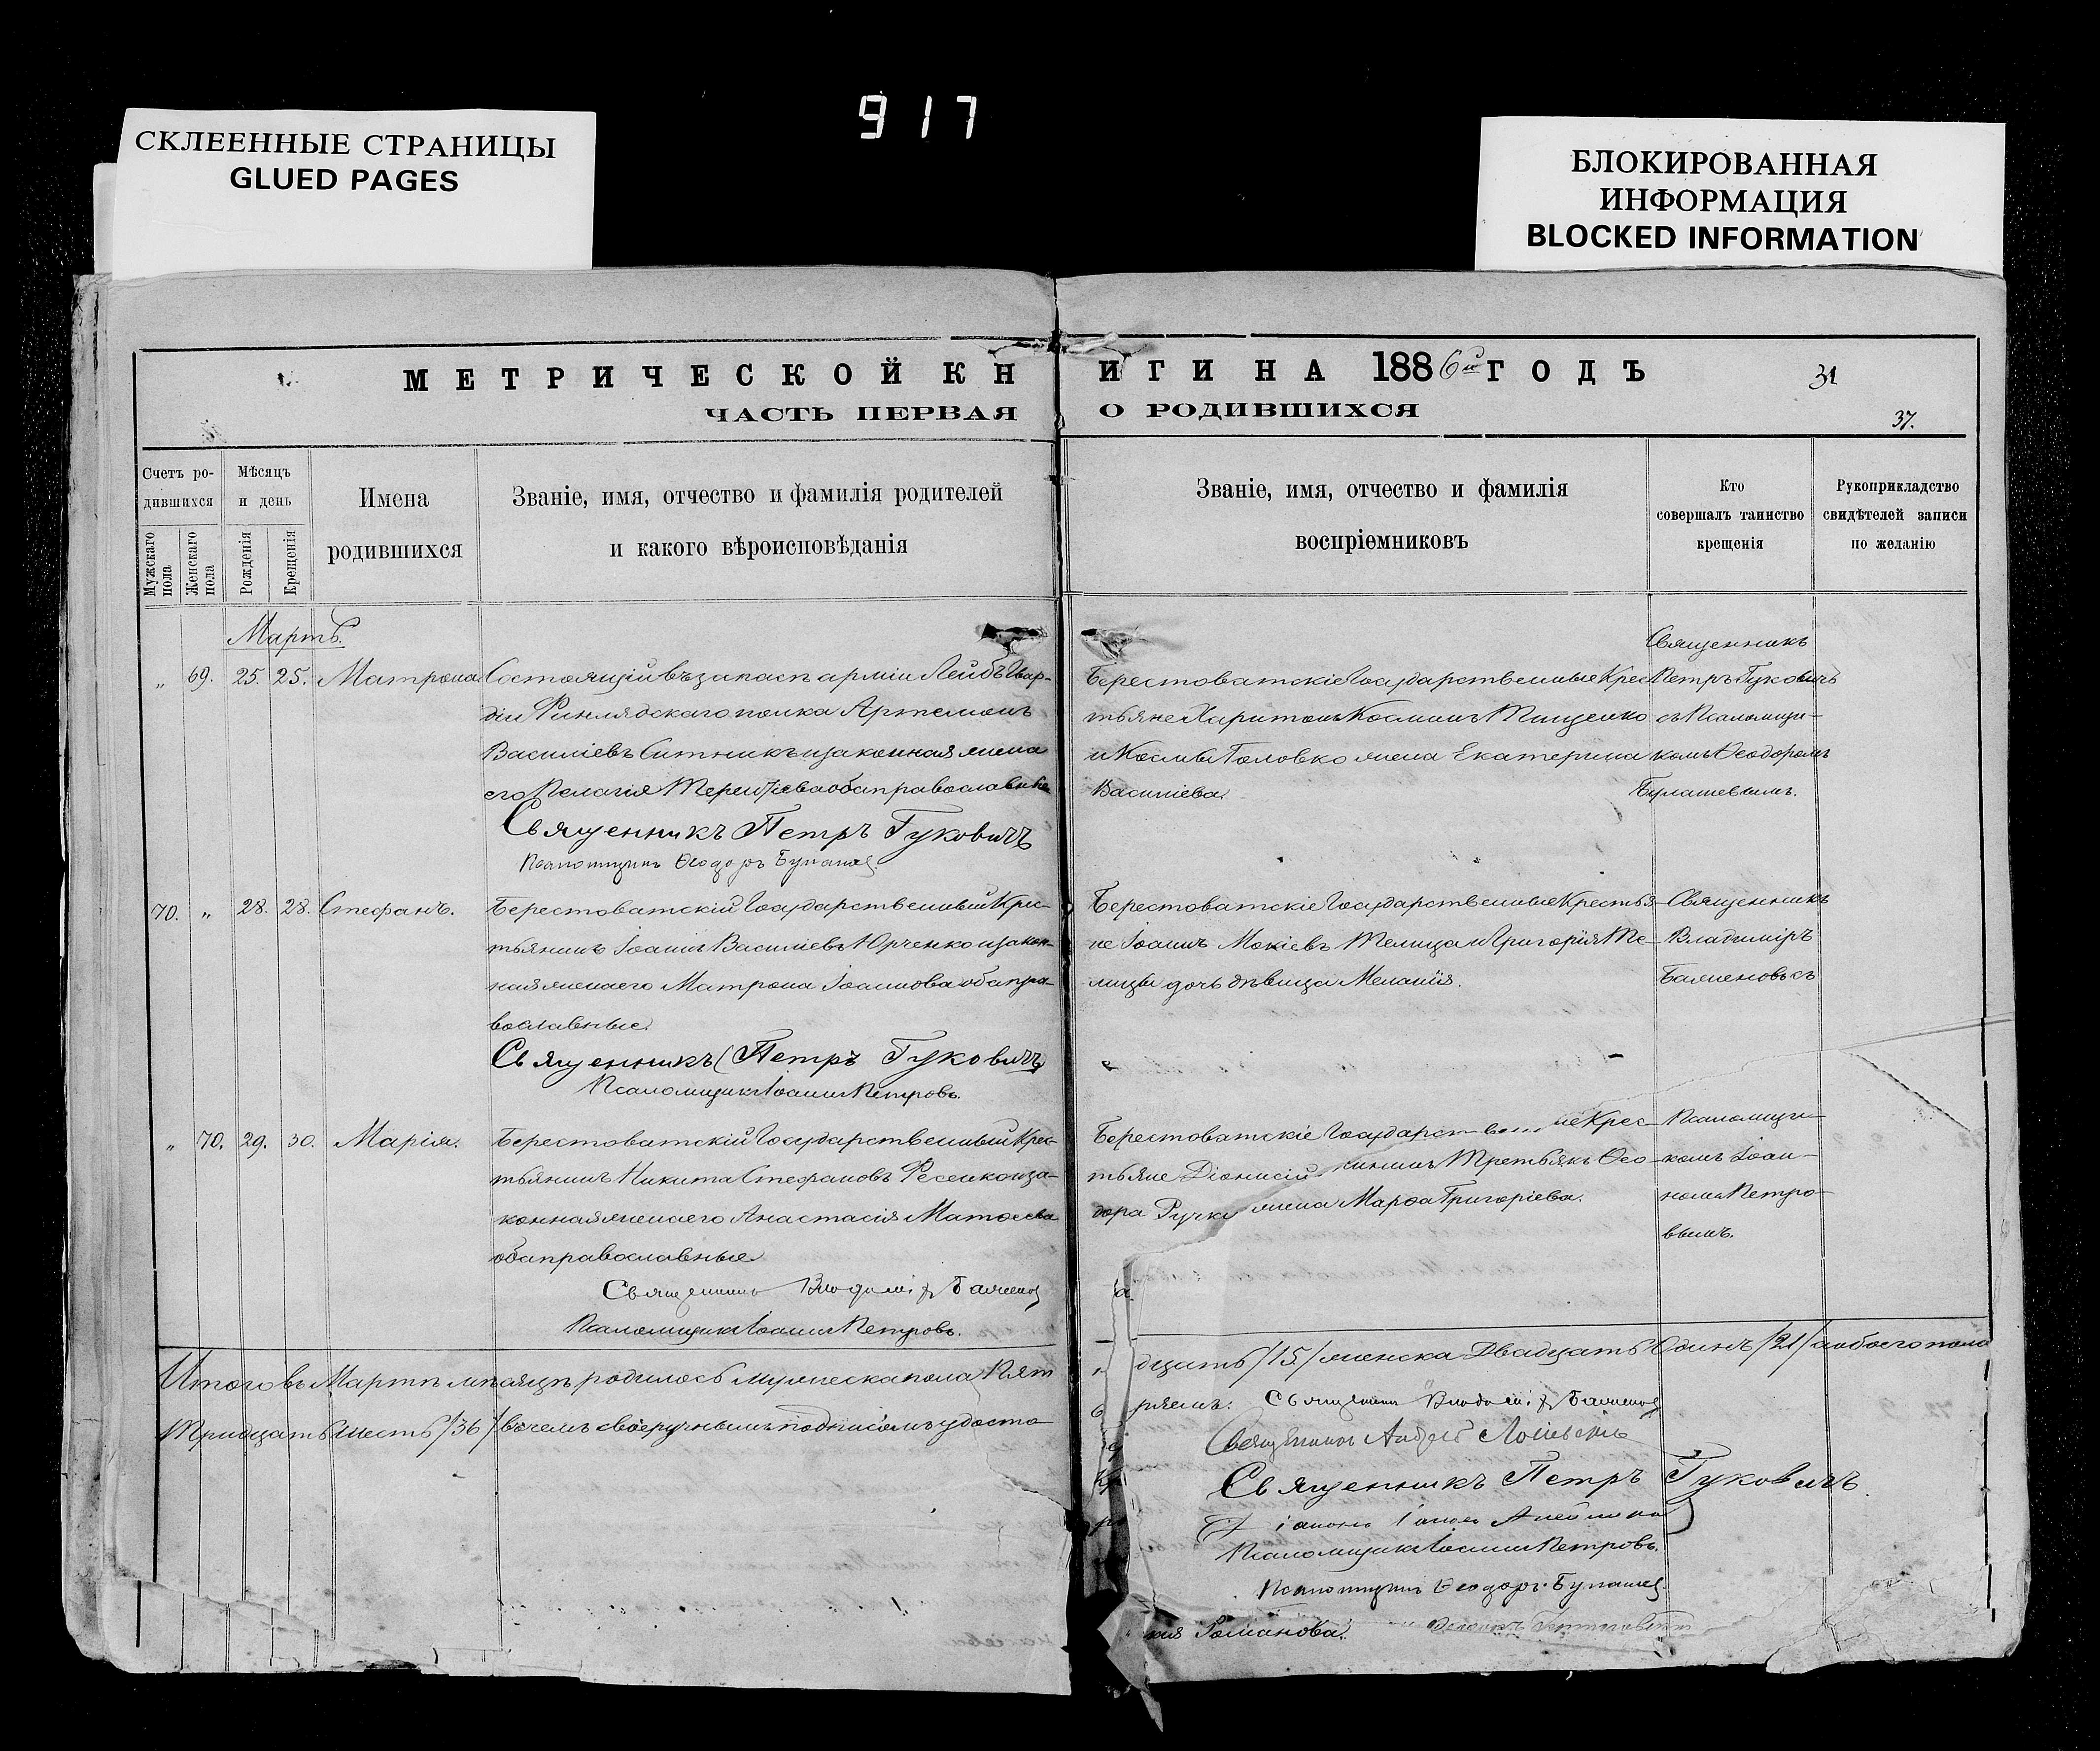 917
СКЛЕЕННЫЕ СТРАНИЦЫ
GLUED PAGES
БЛОКИРОВАННАЯ
ИНФОРМАЦИЯ
BLOCKED INFORMATION
МЕТРИЧЕСКОЙ КНИГИ НА 1886й ГОДЪ
31
ЧАСТЬ ПЕРВАЯ О РОДИВШИХСЯ
37.
Счетъ ро-
дившихся
Мужскаго пола
Женскаго пола
Мѣсяцъ
и день
Рожденія
Крещенія
Имена
родившихся
Званіе, имя, отчество и фамилія родителей
и какого вѣроисповѣданія
Званіе, имя, отчество и фамилія
воспріемниковъ
Кто
совершалъ таинство
крещенія
Рукоприкладство
свидѣтелей записи
по желанію
Мартъ.
„ 69. 25. 25. Матрона.
Состоящій въ запасѣ арміи Лейбъ Гвар-
діи Финлядскаго полка Артемонъ
Василіевъ Ситникъ и законная жена
его Пелагія Терентіева оба православные
Священникъ Петръ Гуковичъ
Псаломщикъ Ѳеодоръ Булашев
Берестоватскіе Государственные Крес
тьяне Харитонъ Косминъ Тищенко
и Космы Головко жена Екатерина
Василіева.
Священникъ
Петръ Гуковичъ
съ Псаломщи-
комъ Ѳеодоромъ
Булашевымъ.
70. „ 28. 28. Стефанъ.
Берестоватскій Государственный Крес-
тьянинъ Іоаннъ Василіевъ Юрченко и закон-
ная жена его Матрона Іоаннова оба пра-
вославные.
Священникъ Петръ Гуковичъ
Псаломщикъ Іоаннъ Петровъ.
Берестоватскіе Государственные Крестья-
не Іоаннъ Мокіевъ Телица и Григорія Те-
лицы дочь дѣвица Меланія.
Священникъ
Владиміръ
Баженовъ съ
„ 70. 29. 30. Марія.
Берестоватскій Государственный Крес-
тьянинъ Никита Стефановъ Фесенко и за-
конная жена его Анастасія Матѳеева
оба православные
Священникъ Владимір Баженов
Псаломщикъ Іоаннъ Петровъ.
Берестоватскіе Государственные Крес-
тьяне Діонисій Третьякъ Ѳео-
дора Ручки жена Марѳа Григоріева.
Псаломщи-
комъ Іоан-
номъ Петро-
вымъ.
Итого въ Мартѣ мѣсяцѣ родилось мужеска пола Пят
дцать /15/ женска Двадцать Одинъ /21/ а обоего пола
Тридцать Шесть /36/ въ чемъ своеручнымъ подписомъ удосто
ряемъ. Священник Владимір Баженов
Священникъ Андрей
Священникъ Петръ Гуковичъ.
Псаломщикъ Іоаннъ Петровъ.
Псаломщикъ Ѳеодоръ Булашев
Романова.